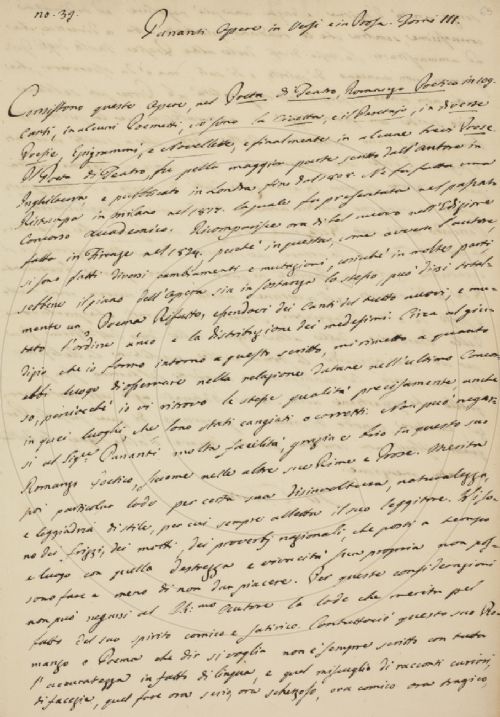 no. 39.
Pananti Opere in Versi e in Prosa. Tomi III.
Consistono queste Opere, nel Poeta di Teatro, Romanzo Poetico in
Canti, in alcuni Poemetti, la Civetta, e il Paretajo, in diverse
Poesie, Epigrammi, e Novellette, e finalmente in alcune brevi Prose
Il Poeta di Teatro, fu nella maggior parte scritto dall'Autore in
Inghilterra e pubblicato in Londra fino dal 1808. Ne fu fatta una
Ristampa in Milano nel 1817. la quale fu presentata nel passato
Concorso Accademico. Ricomparisce ora di bel nuovo nell'Edizione
fatta in Firenze nel 1824. perchè in questa, come avverte l'autore,
si sono fatti diversi cambiamenti e mutazioni, cosichè in molte parti
sebbene il piano dell'Opera sia in sostanza lo stesso, può dirsi total-
mente un Poema Rifatto, essendovi dei Canti del tutto nuovi, e mu-
tato l'ordine e la distribuzione dei medesimi. Circa al giu-
dizio che io formo intorno a questo scritto, mi rimetto a quanto
ebbi luogo di osservare nella relazione datane nell'ultimo Concor-
so, perciocchè io vi ritrovo le stesse qualità precisamente anche
in quei luoghi, che sono stati cangiati o corretti. Non può negar-
si al Sigr. Pananti molta facilità grazia e brio in questo suo
Romanzo Poetico, siccome nelle altre sue Rime e Prose. Merita
poi particolar lode per certa sua disinvoltura, naturalezza,
e leggiadria di stile, per cui sempre alletta il suo leggitore. Vi so-
no dei frizzi, dei motti, dei proverbj nazionali, che posti a tempo
e luogo con quella destrezza e vivacità sua propria non pos-
sono fare a meno di non dar piacere. Per queste considerazioni
non può negarsi al Autore la lode che merita pel
fatto del suo spirito comico e satirico. Contuttociò questo suo Ro-
manzo o Poema che dir si voglia non è sempre scritto con tutta
l'accuratezza in fatto di lingua, e quel miscuglio di racconti curiosi,
di facezie, quel fare ora serio, ora scherzoso, ora comico ora tragico,